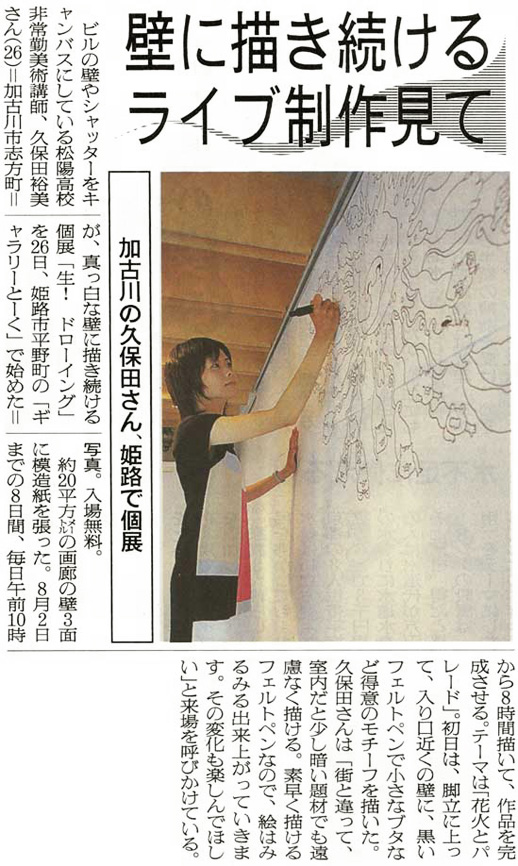 壁に描き続ける
ライブ制作見て
加古川の久保田さん、姫路で個展
ビルの壁やシャッターをキ
ャンバスにしている松陽高校
非常勤美術講師、久保田裕美
さん(26)＝加古川市志方町＝
が、真っ白な壁に描き続ける
個展「生！　ドローイング」
を26日、姫路市平野町の「ギ
ャラリーとーく」で始めた＝
写真。入場無料。
約20平方㍍の画廊の壁3面
に模造紙を張った。8月2日
までの8日間、毎日午前10時
から8時間描いて、作品を完
成させる。テーマは「花火とパ
レード」。初日は、脚立に上っ
て、入り口近くの壁に、黒い
フェルトペンで小さなブタな
ど得意のモチーフを描いた。
久保田さんは「街と違って、
室内だと少し暗い題材でも遠
慮なく描ける。素早く描ける
フェルトペンなので、絵はみ
るみる出来上がっていきま
す。その変化も楽しんでほし
い」と来場を呼びかけている。